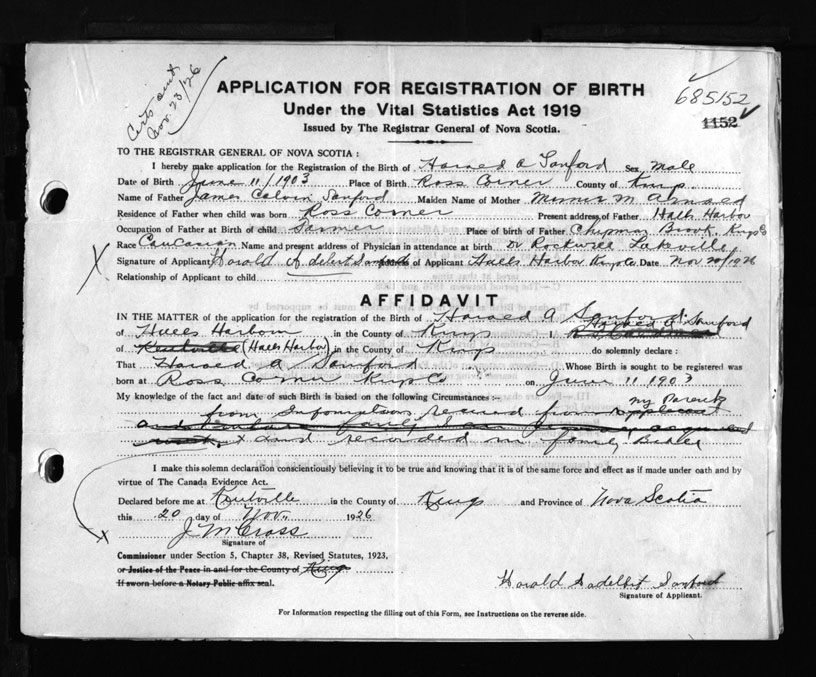 Certs sent
Nov. 23/26
APPLICATION FOR REGISTRATION OF BIRTH
Under the Vital Statistics Act 1919
Issued by The Registrar General of Nova Scotia.
685152
1152
TO THE REGISTRAR GENERAL OF NOVA SCOTIA :
I hereby make application for the Registration of the Birth of Harold A Sanford Sex Male
Date of Birth June 11/1903 Place of Birth Ross Corner County of Kings
Name of Father James Calvin Sanford Maiden Name of Mother M.
Residence of Father when child was born Ross Corner Present address of Father Halls Harbor
Occupation of Father at Birth of child Farmer Place of birth of Father Chipman Brook, Kings Co
Race Caucasian Name and present address of Physician in attendance at birth Dr Rockwell Lakeville
Signature of Applicant Harold Adelbert Sanford Address of Applicant Halls Harbor Kings Co. Date Nov 20/1926
Relationship of Applicant to child
AFFIDAVIT
IN THE MATTER of the application for the registration of the Birth of Harold A Sanford
of Halls Harbour in the County of Kings I, Harold A Sanford
of Kentville (Halls Harbor) in the County of Kings do solemnly declare :
That Harold A Sanford Whose Birth is sought to be registered was
born at Ross Corner Kings Co on June 11 1903
My knowledge of the fact and date of such Birth is based on the following Circumstances :- my Parents
from Information received from applicant
and recorded in family Bible
I make this solemn declaration conscientiously believing it to be true and knowing that it is of the same force and effect as if made under oath and by
virtue of The Canada Evidence Act.
Declared before me at Kentville in the County of Kings and Province of Nova Scotia
this 20 day of Nov. 1926
J M Cross
Signature of
Commissioner under Section 5, Chapter 38, Revised Statutes, 1923,
or Justice of the Peace in and for the County of Kings
If sworn before a Notary Public affix seal.
Harold Aadelbert Sanford
Signature of Applicant.
For Information respecting the filling out of this Form, see Instructions on the reverse side.